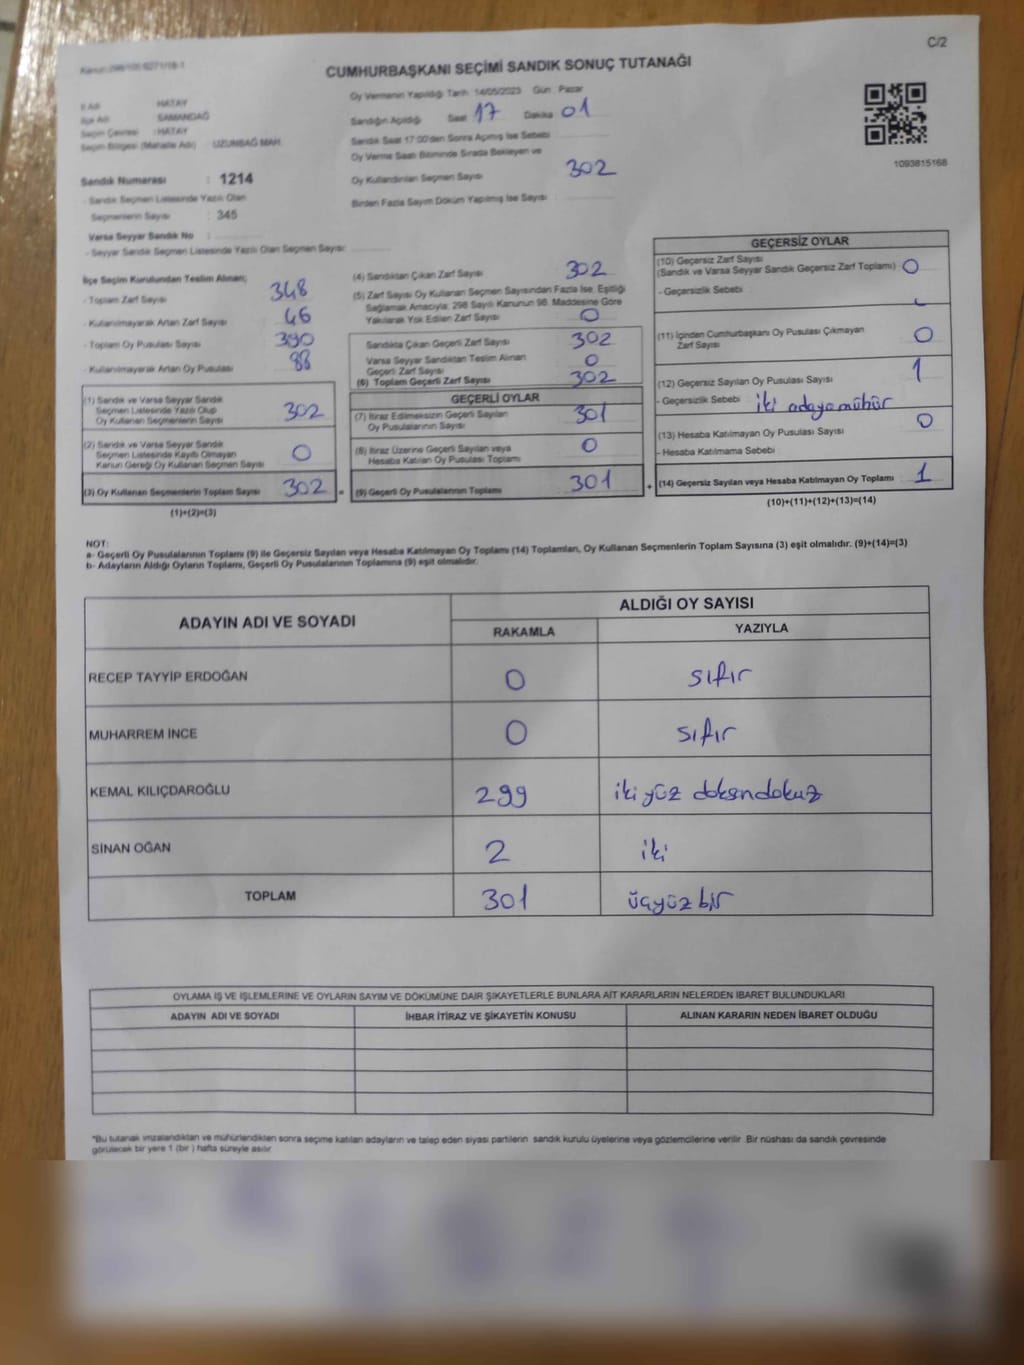 C/2
Kanun:298/106 6271/18-1
CUMHURBAŞKANI SEÇİMİ SANDIK SONUÇ TUTANAĞI
İl Adı : HATAY
İlçe Adı : SAMANDAĞ
Seçim Çevresi : HATAY
Seçim Bölgesi (Mahalle Adı) : UZUNBAĞ MAH.
Sandık Numarası : 1214
- Sandık Seçmen Listesinde Yazılı Olan
Seçmenlerin Sayısı : 345
Varsa Seyyar Sandık No :
- Seyyar Sandık Seçmen Listesinde Yazılı Olan Seçmen Sayısı:
Oy Vermenin Yapıldığı Tarih :14/05/2023 Gün : Pazar
Sandığın Açıldığı Saat 17 Dakika 01
Sandık Saat 17:00'den Sonra Açılmış İse Sebebi
Oy Verme Saati Bitiminde Sırada Bekleyen ve
Oy Kullandırılan Seçmen Sayısı 302
Birden Fazla Sayım Döküm Yapılmış İse Sayısı
1093815168
İlçe Seçim Kurulundan Teslim Alınan;
- Toplam Zarf Sayısı 348
- Kullanılmayarak Artan Zarf Sayısı 46
- Toplam Oy Pusulası Sayısı 390
- Kullanılmayarak Artan Oy Pusulası 88
(1) Sandık ve Varsa Seyyar Sandık
Seçmen Listesinde Yazılı Olup
Oy Kullanan Seçmenlerin Sayısı 302
(2) Sandık ve Varsa Seyyar Sandık
Seçmen Listesinde Kayıtlı Olmayan
Kanun Gereği Oy Kullanan Seçmen Sayısı 0
(3) Oy Kullanan Seçmenlerin Toplam Sayısı 302 =
(1)+(2)=(3)
(4) Sandıktan Çıkan Zarf Sayısı 302
(5) Zarf Sayısı Oy Kullanan Seçmen Sayısından Fazla İse, Eşitliği
Sağlamak Amacıyla; 298 Sayılı Kanunun 98. Maddesine Göre
Yakılarak Yok Edilen Zarf Sayısı 0
Sandıkta Çıkan Geçerli Zarf Sayısı 302
Varsa Seyyar Sandıktan Teslim Alınan
Geçerli Zarf Sayısı 0
(6) Toplam Geçerli Zarf Sayısı 302
GEÇERLİ OYLAR
(7) İtiraz Edilmeksizin Geçerli Sayılan
Oy Pusulalarının Sayısı 301
(8) İtiraz Üzerine Geçerli Sayılan veya
Hesaba Katılan Oy Pusulası Toplamı 0
(9) Geçerli Oy Pusulalarının Toplamı 301 +
GEÇERSİZ OYLAR
(10) Geçersiz Zarf Sayısı
(Sandık ve Varsa Seyyar Sandık Geçersiz Zarf Toplamı) 0
- Geçersizlik Sebebi
(11) İçinden Cumhurbaşkanı Oy Pusulası Çıkmayan
Zarf Sayısı 0
(12) Geçersiz Sayılan Oy Pusulası Sayısı 1
- Geçersizlik Sebebi iki adaya mühür
(13) Hesaba Katılmayan Oy Pusulası Sayısı 0
- Hesaba Katılmama Sebebi
(14) Geçersiz Sayılan veya Hesaba Katılmayan Oy Toplamı 1
(10)+(11)+(12)+(13)=(14)
NOT:
a- Geçerli Oy Pusulalarının Toplamı (9) ile Geçersiz Sayılan veya Hesaba Katılmayan Oy Toplamı (14) Toplamları, Oy Kullanan Seçmenlerin Toplam Sayısına (3) eşit olmalıdır. (9)+(14)=(3)
b- Adayların Aldığı Oyların Toplamı, Geçerli Oy Pusulalarının Toplamına (9) eşit olmalıdır.
ADAYIN ADI VE SOYADI ALDIĞI OY SAYISI
RAKAMLA YAZIYLA
RECEP TAYYİP ERDOĞAN 0 sıfır
MUHARREM İNCE 0 sıfır
KEMAL KILIÇDAROĞLU 299 iki yüz doksandokuz
SİNAN OĞAN 2 iki
TOPLAM 301 üçyüz bir
OYLAMA İŞ VE İŞLEMLERİNE VE OYLARIN SAYIM VE DÖKÜMÜNE DAİR ŞİKAYETLERLE BUNLARA AİT KARARLARIN NELERDEN İBARET BULUNDUKLARI
ADAYIN ADI VE SOYADI İHBAR İTİRAZ VE ŞİKAYETİN KONUSU ALINAN KARARIN NEDEN İBARET OLDUĞU
*Bu tutanak imzalandıktan ve mühürlendikten sonra seçime katılan adayların ve talep eden siyasi partilerin sandık kurulu üyelerine veya gözlemcilerine verilir. Bir nüshası da sandık çevresinde
görülecek bir yere 1 (bir ) hafta süreyle asılır.